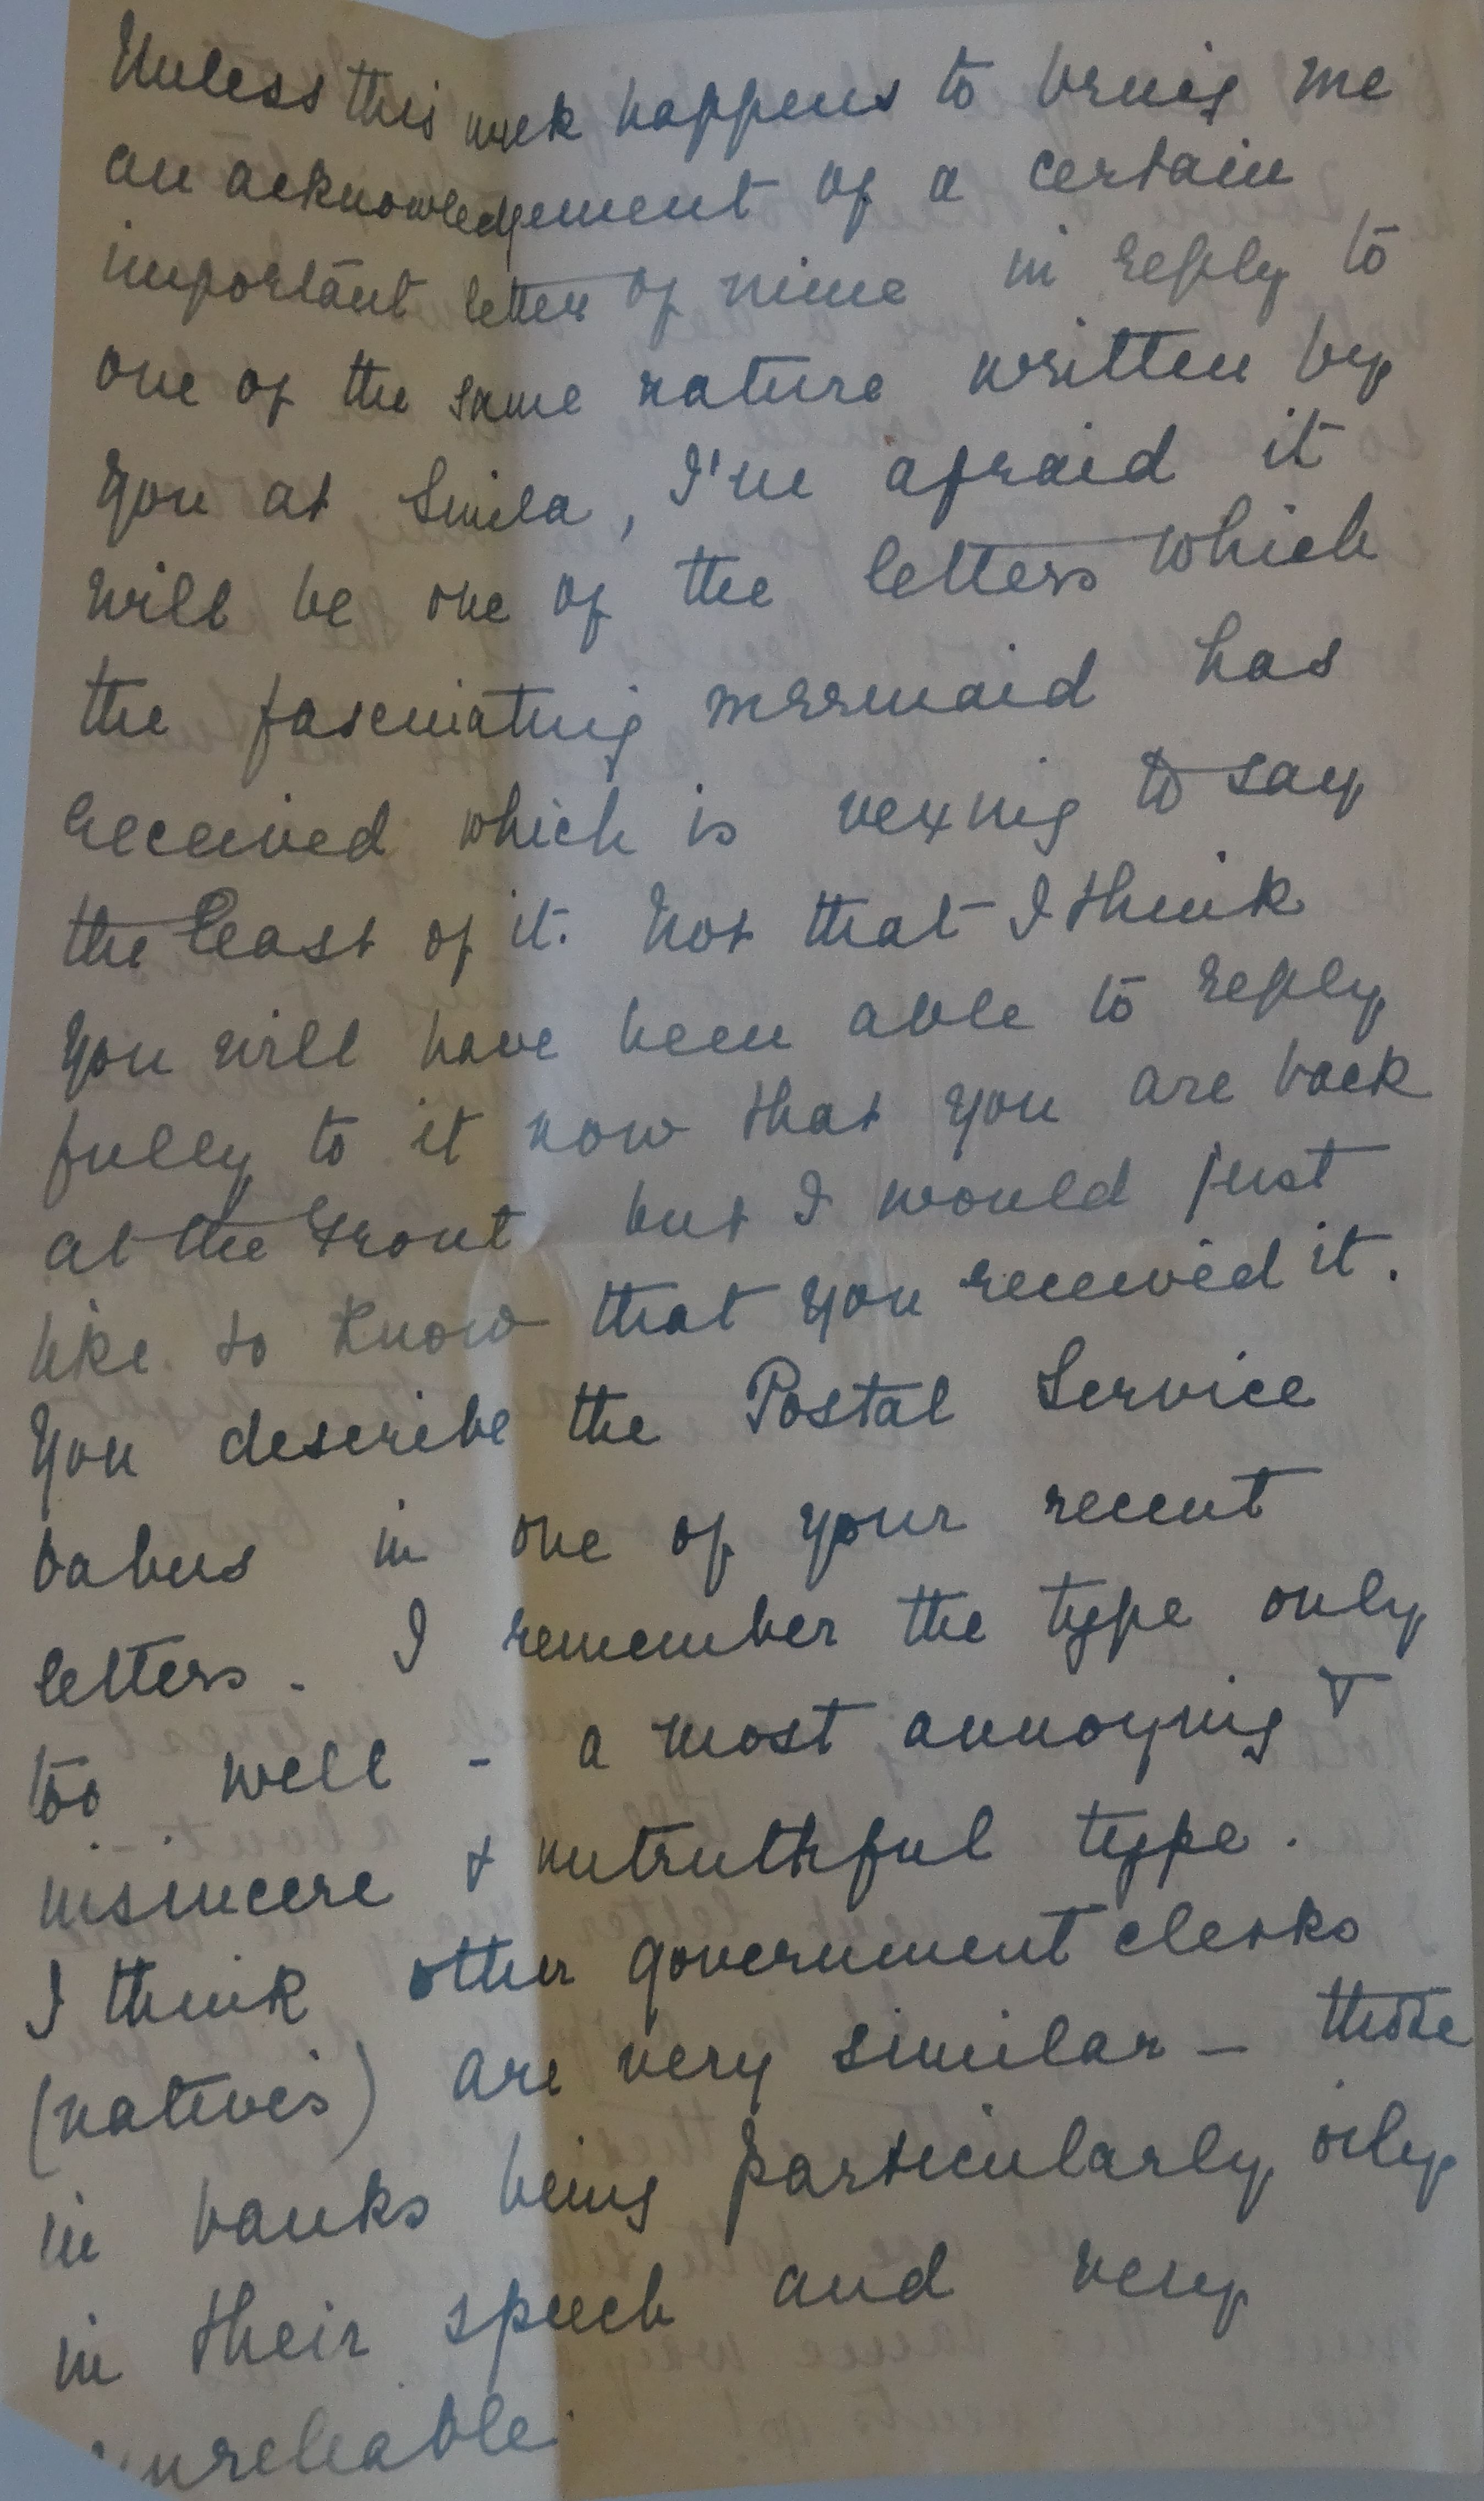 Unless this week happens to bring me
an acknowledgement of a certain
important letter of mine in reply to
one of the same nature written by
you at Simla, I'm afraid it
will be one of the letters which
the fascinating mermaid has
received which is vexing to say
the least of it. Not that I think
you will have been able to reply
fully to it now that you are back
at the Front but I would just
like to know that you received it.
You describe the Postal Service
babus in one of your recent
letters. I remember the type only
too well - a most annoying &
insincere & untruthful type.
I think other government clerks
(natives) are very similar - those
in banks being particularly oily
in their speech and very
unreliable.